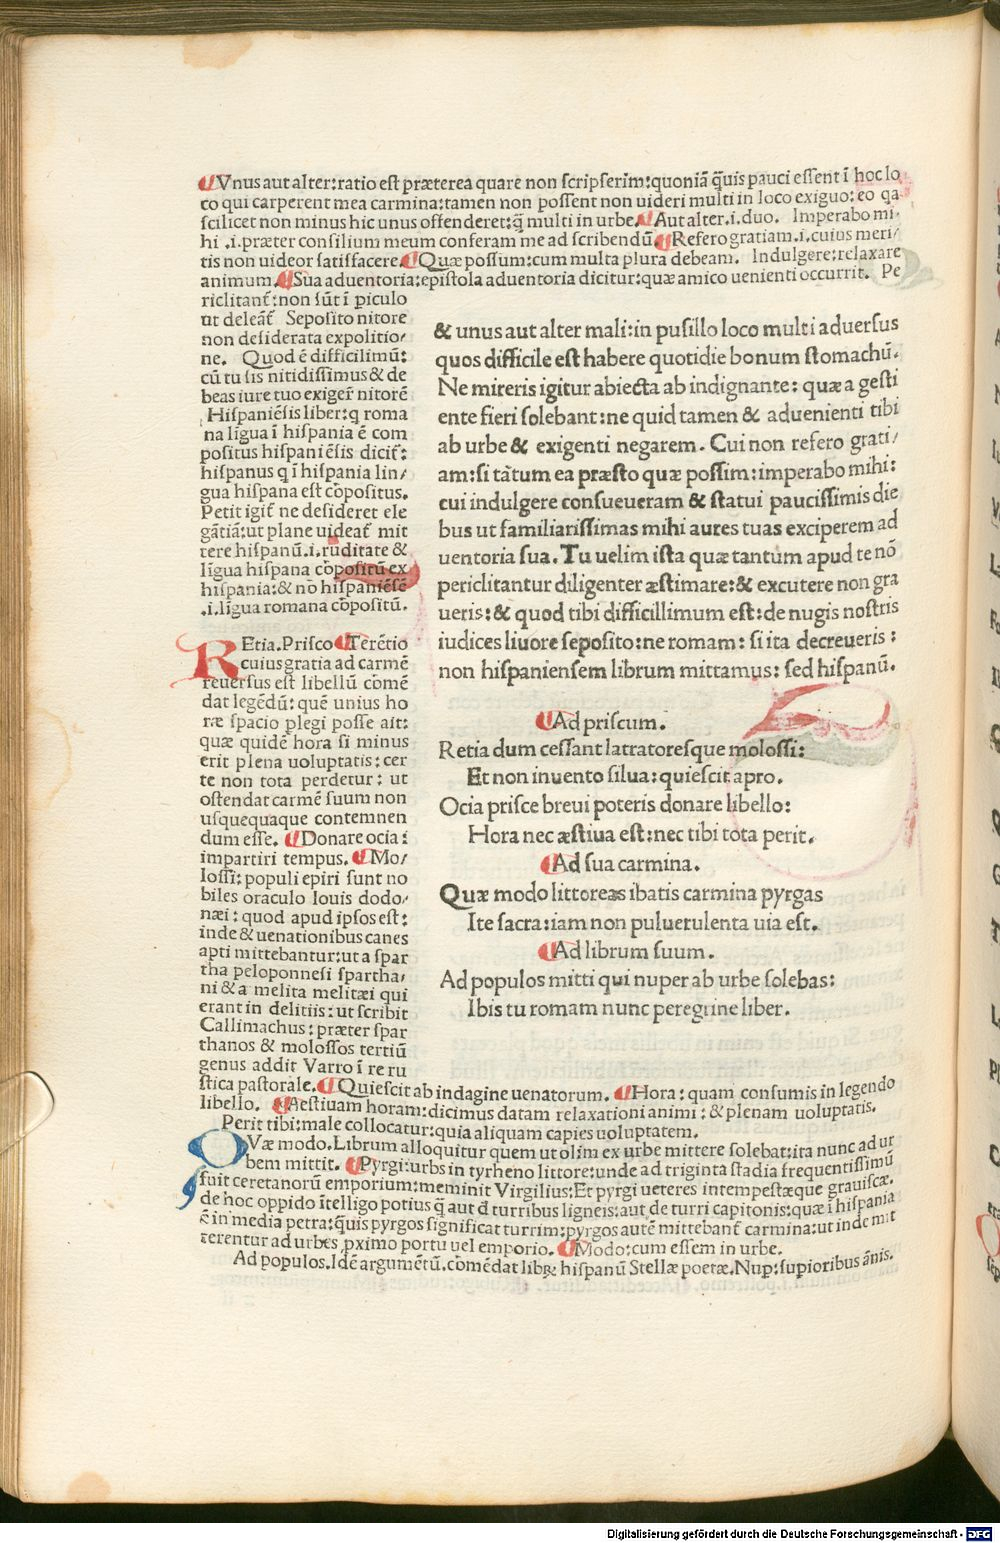 Vnus aut alter:ratio est præterea quare non scripserim:quoniã q̃uis pauci essent ĩ hoc lo
co qui carperent mea carmina:tamen non possent non uideri multi in loco exiguo: eo qa
scilicet non minus hic unus offenderet:q̃ multi in urbe. Aut alter.i.duo. Imperabo mi-
hi .i.præter consilium meum conferam me ad scribendũ. Refero gratiam.i.cuius meri/
tis non uideor satisfacere. Quæ possium:cum multa plura debeam. Indulgere:relaxare
animum. Sua aduentoria:epistola aduentoria dicitur:quæ amico uenienti occurrit. Pe
riclitant᷑:non sũt ĩ piculo
ut deleãt᷑ Seposito nitore
non desiderata expolitio/
ne. Quod ẽ difficilimũ:
cũ tu sis nitidissimus & de
beas iure tuo exiger᷑ nitorẽ
Hispaniẽsis liber:q roma
na lĩgua ĩ hispania ẽ com
positus hispaniẽsis dicit᷑:
hispanus q ĩ hispania lin/
gua hispana est cõpositus.
Petit igit᷑ ne desideret ele
gãtiã:ut plane uideat᷑ mit
tere hispanũ.i.ruditate &
lĩgua hispana cõpositũ ex
hispania:& nõ hispaniẽsẽ
.i.lĩgua romana cõpositũ.
& unus aut alter mali:in pusillo loco multi aduersus
quos difficile est habere quotidie bonum stomachũ.
Ne mireris igitur abiecta ab indignante: quæ a gesti
ente fieri solebant:ne quid tamen & aduenienti tibi
ab urbe & exigenti negarem. Cui non refero grati/
am:si tãtum ea præsto quæ possim:imperabo mihi:
cui indulgere consueueram & statui paucissimis die
bus ut familiarissimas mihi aures tuas exciperem ad
uentoria sua. Tu uelim ista quæ tantum apud te nõ
periclitantur diligenter æstimare:& excutere non gra
ueris:& quod tibi difficillimum est:de nugis nostris
iudices liuore seposito:ne romam: si ita decreueris :
non hispaniensem librum mittamus: sed hispanũ.
REtia.Prisco Terẽtio
cuius gratia ad carmẽ
reuersus est libellũ cõmẽ
dat legẽdũ: quẽ unius ho
ræ spacio plegi posse ait:
quæ quidẽ hora si minus
erit plena uoluptatis:cer
te non tota perdetur: ut
ostendat carmẽ suum non
usquequaque contemnen
dum esse. Donare ocia:
impartiri tempus. Mo/
lossi: populi epiri sunt no
biles oraculo Iouis dodo/
næi: quod apud ipsos est:
inde & uenationibus canes
apti mittebantur:ut a spar
tha peloponnesi spartha/
ni & a melita melitæi qui
erant in delitiis: ut scribit
Callimachus: præter spar
thanos & molossos tertiũ
genus addit Varro ĩ re ru
stica pastorale. Quiescit ab indagine uenatorum. Hora: quam consumis in legendo
libello. Aestiuam horam:dicimus datam relaxationi animi: & plenam uoluptatis.
Perit tibi:male collocatur:quia aliquam capies uoluptatem.
Ad priscum.
Retia dum cessant latratoresque molossi:
Et non inuento silua:quiescit apro.
Ocia prisce breui poteris donare libello:
Hora nec æstiua est:nec tibi tota perit.
Ad sua carmina.
Quæ modo littoreas ibatis carmina pyrgas
Ite sacra:iam non puluerulenta uia est.
Ad librum suum.
Ad populos mitti qui nuper ab urbe solebas:
Ibis tu romam nunc peregrine liber.
QVæ modo.Librum alloquitur quem ut olim ex urbe mittere solebat:ita nunc ad ur
bem mittit. Pyrgi:urbs in tyrheno littore:unde ad triginta stadia frequentissimũ
fuit ceretanorũ emporium:meminit Virgilius:Et pyrgi ueteres intempestæque grauiscæ.
de hoc oppido ĩtelligo potius q̃ aut d turribus ligneis:aut de turri capitonis:quæ ĩ hispania
ẽ in media petra:q̃uis pyrgos significat turrim:pyrgos autẽ mittebant᷑ carmina:ut inde mit
terentur ad urbẽs pximo portu uel emporio. Modo:cum essem in urbe.
Ad populos.Idẽ argumẽtũ.cõmẽdat libꝝ hispanũ Stellæ poetæ.Nup:supioribus ãnis.
Digitalisierung gefördert durch die Deutsche Forschungsgemeinschaft - DFG